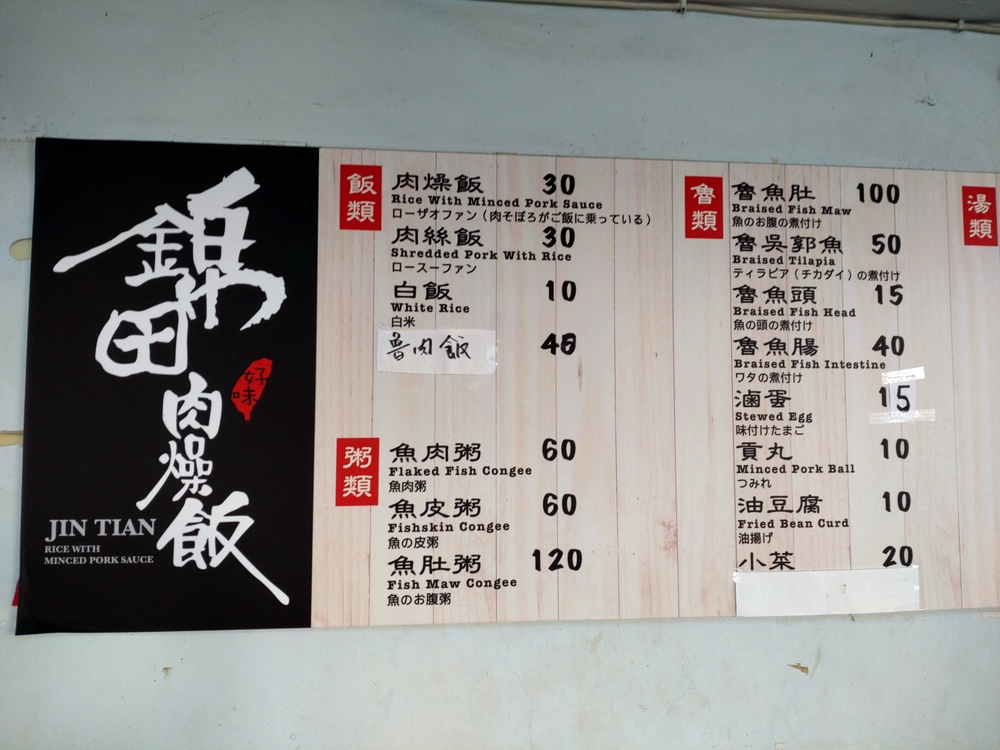 錦田
好味
肉燥飯
JIN TIAN
RICE WITH
MINCED PORK SAUCE
飯類
肉燥飯 30
Rice With Minced Pork Sauce
ローザオファン（肉そぼろがご飯に乗っている）
肉絲飯 30
Shredded Pork With Rice
ロースーファン
白飯 10
White Rice
白米
魯肉飯 40
粥類
魚肉粥 60
Flaked Fish Congee
魚肉粥
魚皮粥 60
Fishskin Congee
魚の皮粥
魚肚粥 120
Fish Maw Congee
魚のお腹粥
魯類
魯魚肚 100
Braised Fish Maw
魚のお腹の煮付け
魯吳郭魚 50
Braised Tilapia
ティラピア（チカダイ）の煮付け
魯魚頭 15
Braised Fish Head
魚の頭の煮付け
魯魚腸 40
Braised Fish Intestine
ワタの煮付け
滷蛋 15
Stewed Egg
味付けたまご
貢丸 10
Minced Pork Ball
つみれ
油豆腐 10
Fried Bean Curd
油揚げ
小菜 20
湯類